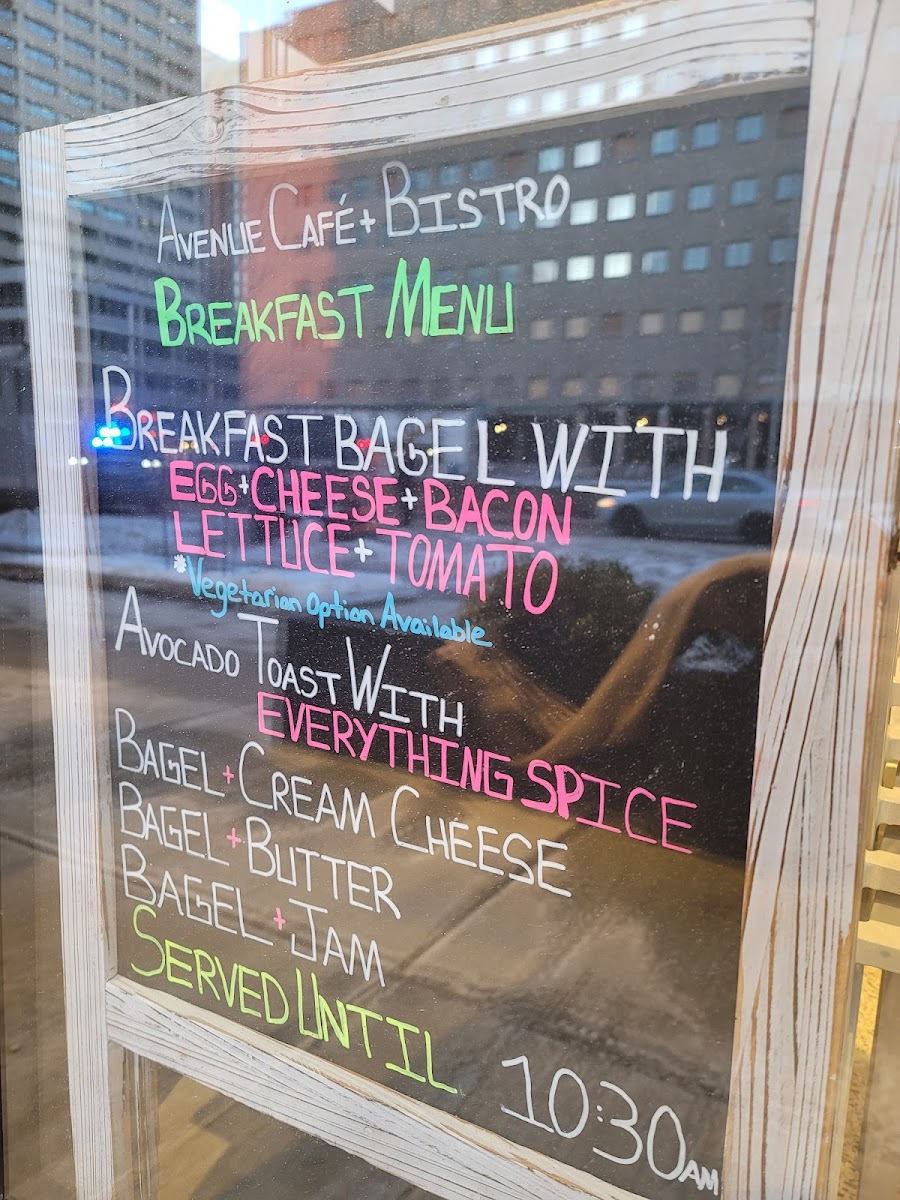 AVENUE CAFÉ + BISTRO
BREAKFAST MENU
BREAKFAST BAGEL WITH
EGG + CHEESE + BACON
LETTUCE + TOMATO
*Vegetarian Option Available
AVOCADO TOAST WITH
EVERYTHING SPICE
BAGEL + CREAM CHEESE
BAGEL + BUTTER
BAGEL + JAM
SERVED UNTIL
10:30AM